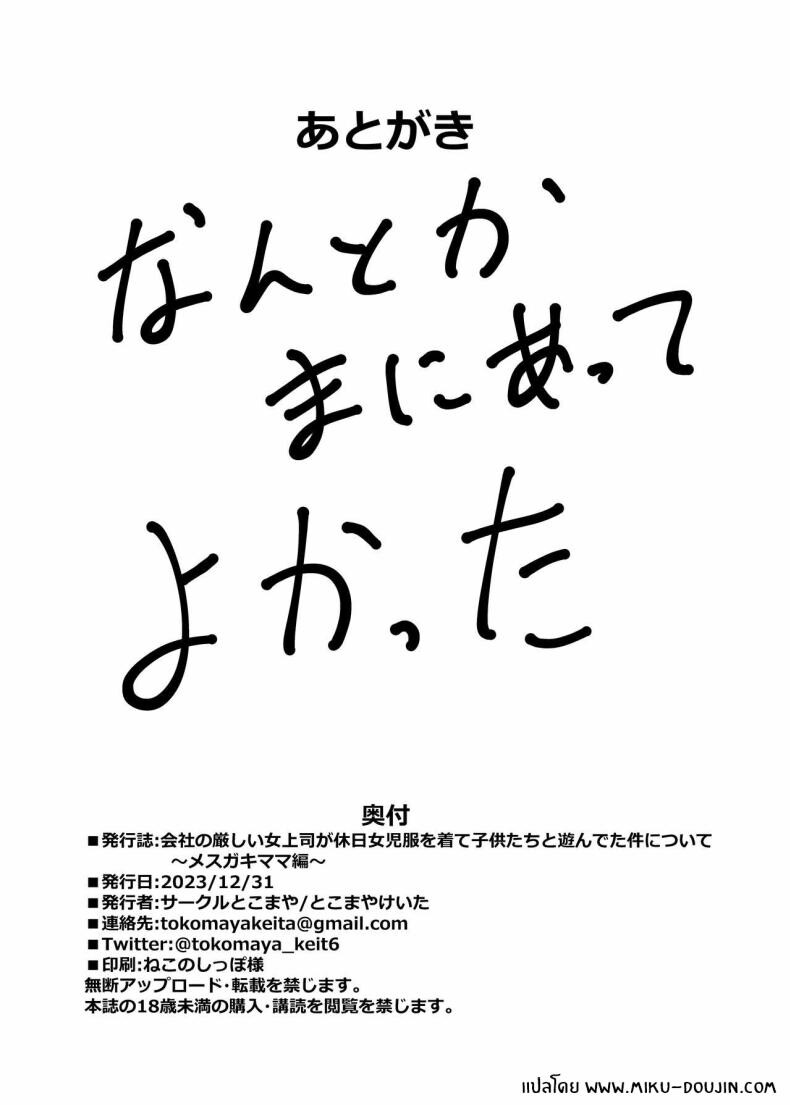 あとがき
なんとか
まにあって
よかった
奥付
■発行誌:会社の厳しい女上司が休日女児服を着て子供たちと遊んでた件について
～メスガキママ編～
■発行日:2023/12/31
■発行者:サークルとこまや/とこまやけいた
■連絡先:tokomayakeita@gmail.com
■Twitter:@tokomaya_keit6
■印刷:ねこのしっぽ様
無断アップロード・転載を禁じます。
本誌の18歳未満の購入・講読を閲覧を禁じます。
แปลโดย WWW.MIKU-DOUJIN.COM